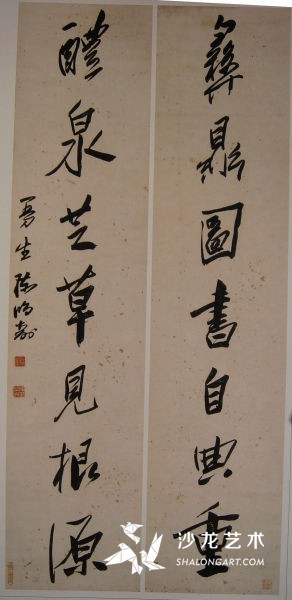 彝鼎圖書自典重
醴泉芝草見根源
曼生陳鴻壽
沙龙艺术
SHALONGART.COM